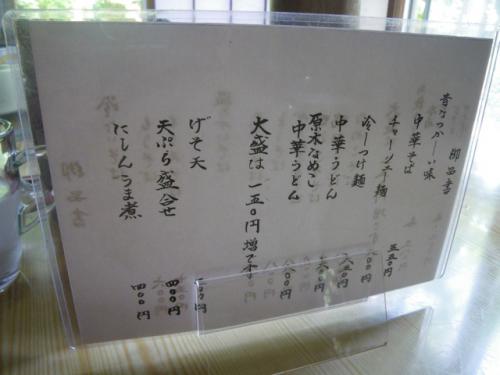 御品書
昔なつかしい味
中華そば 五五〇円
チャーシュー麺 七〇〇円
冷しつけ麺 八五〇円
中華うどん
原木なめこ
中華うどん 八〇〇円
大盛は一五〇円増です
げそ天
天ぷら盛合せ 四〇〇円
にしんうま煮 四〇〇円